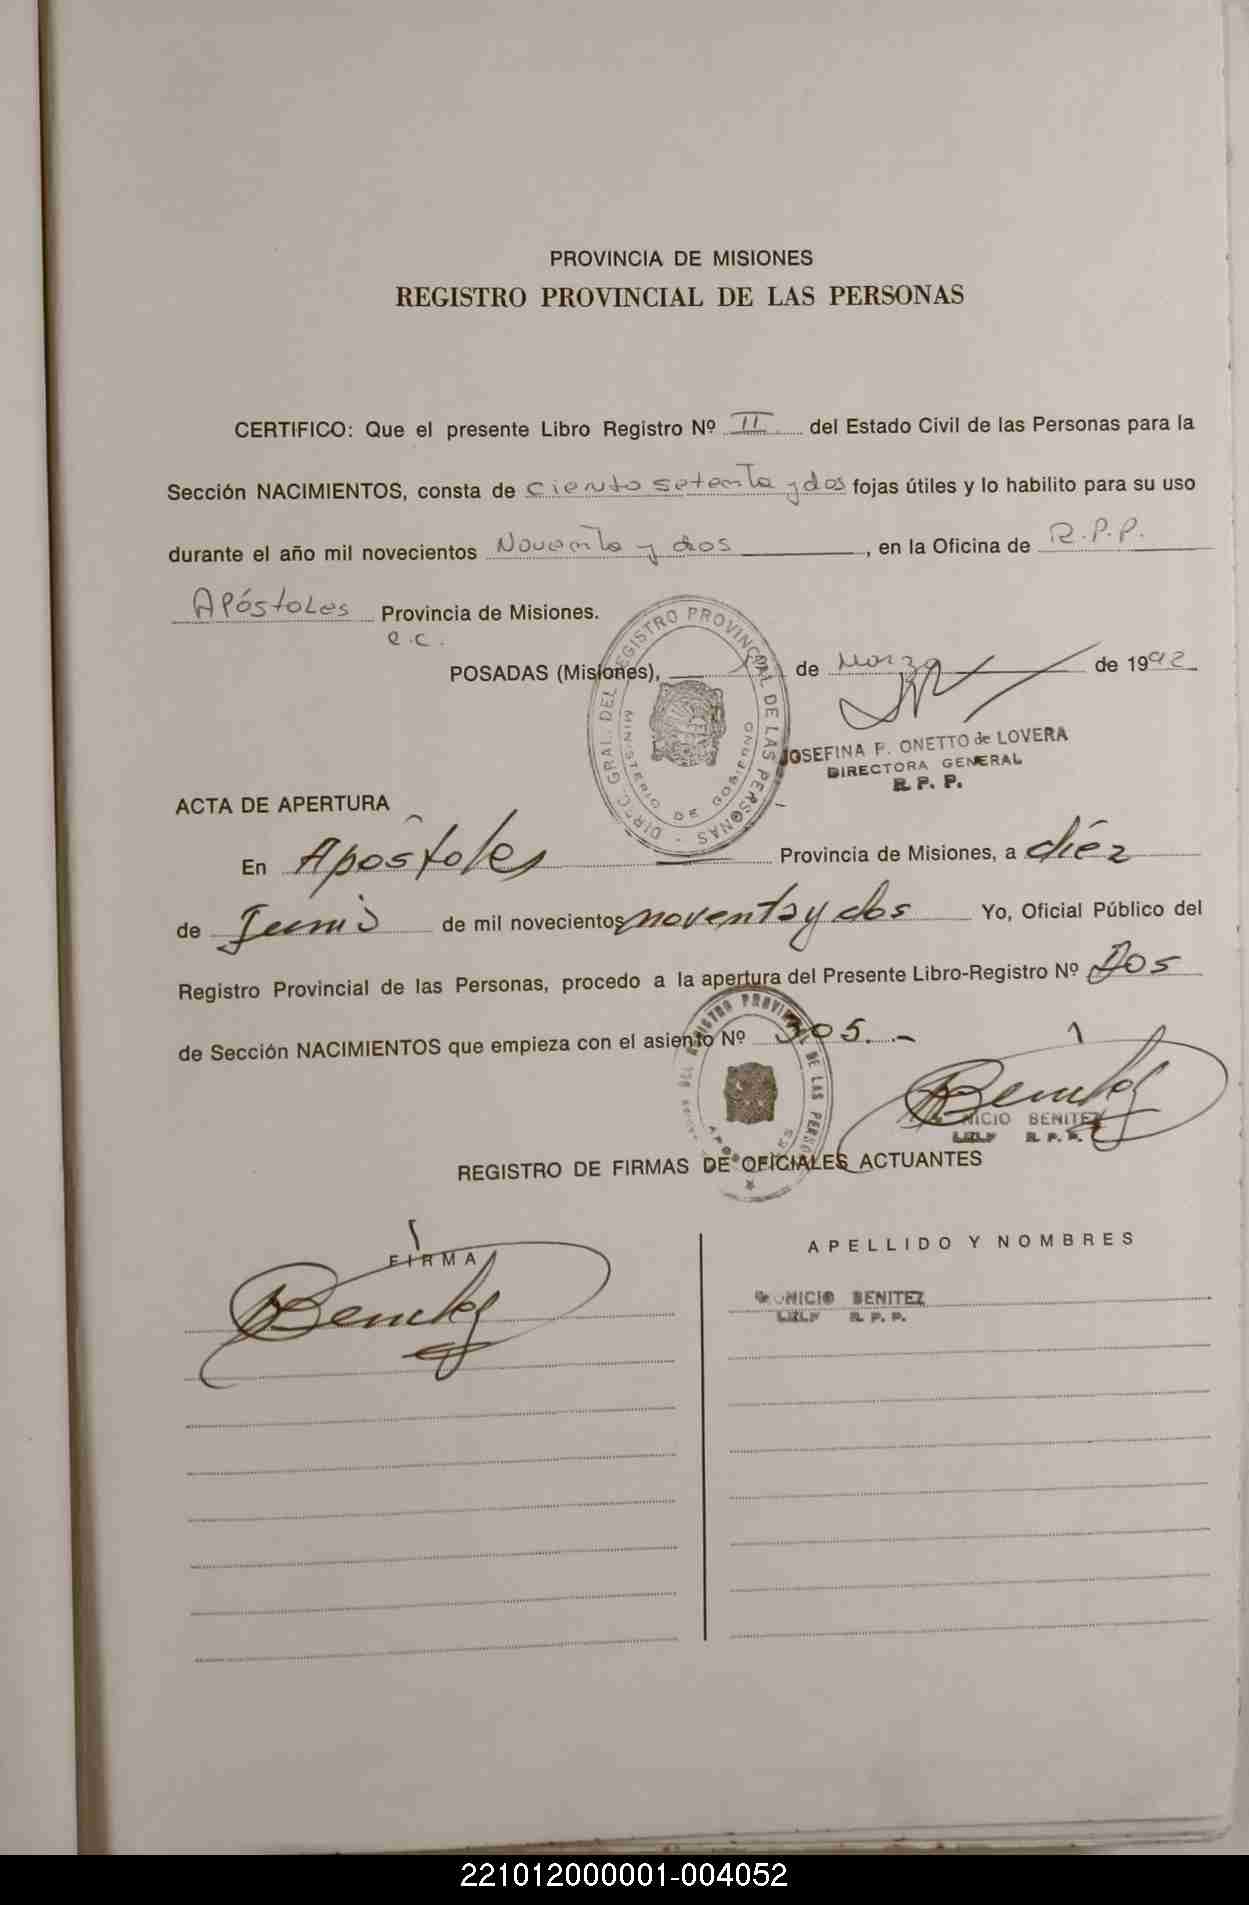 PROVINCIA DE MISIONES
REGISTRO PROVINCIAL DE LAS PERSONAS
CERTIFICO: Que el presente Libro Registro Nº II del Estado Civil de las Personas para la
Sección NACIMIENTOS, consta de ciento setenta y dos fojas útiles y lo habilito para su uso
durante el año mil novecientos Noventa y dos, en la Oficina de R.P.P.
Apóstoles Provincia de Misiones.
e.c.
POSADAS (Misiones), de Marzo de 1992
DIREC. GRAL. DEL REGISTRO PROVINCIAL DE LAS PERSONAS
MINISTERIO DE GOBIERNO
JOSEFINA P. ONETTO de LOVERA
DIRECTORA GENERAL
R. P. P.
ACTA DE APERTURA
En Apóstoles Provincia de Misiones, a diéz
de Junio de mil novecientos noventa y dos Yo, Oficial Público del
Registro Provincial de las Personas, procedo a la apertura del Presente Libro-Registro Nº Dos
de Sección NACIMIENTOS que empieza con el asiento Nº 305.-
Benitez
NICIO BENITEZ
R. P. P.
REGISTRO DE FIRMAS DE OFICIALES ACTUANTES
FIRMA
APELLIDO Y NOMBRES
Benitez
NICIO BENITEZ
R. P. P.
221012000001-004052